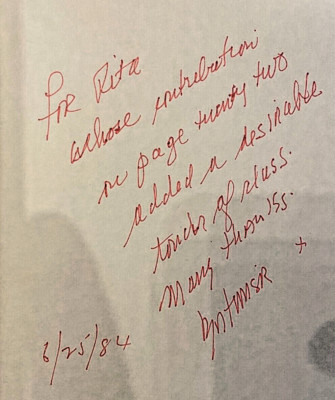 For Rita
whose contribution
on page twenty two
added a desirable
touch of class.
Many thanks.
6/25/84